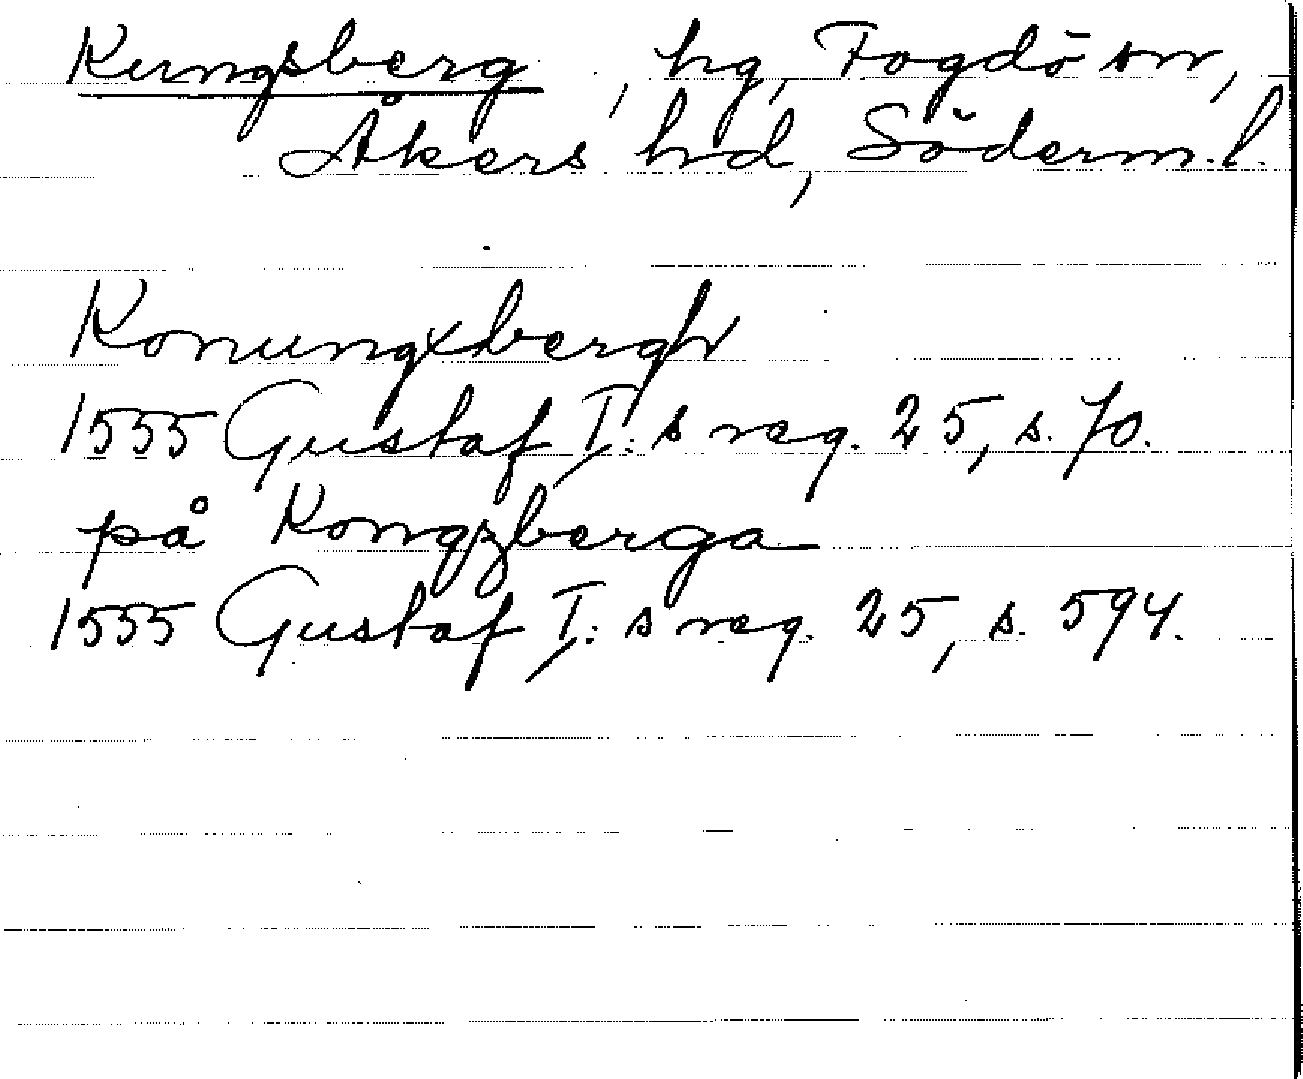 Kungsberg, hg, Fogdö sn,
Åkers hd, Söderm.l.
Konungxbergh
1555 Gustaf I:s reg. 25, s. 70.
på Kongzberga
1555 Gustaf I:s reg. 25, s. 594.